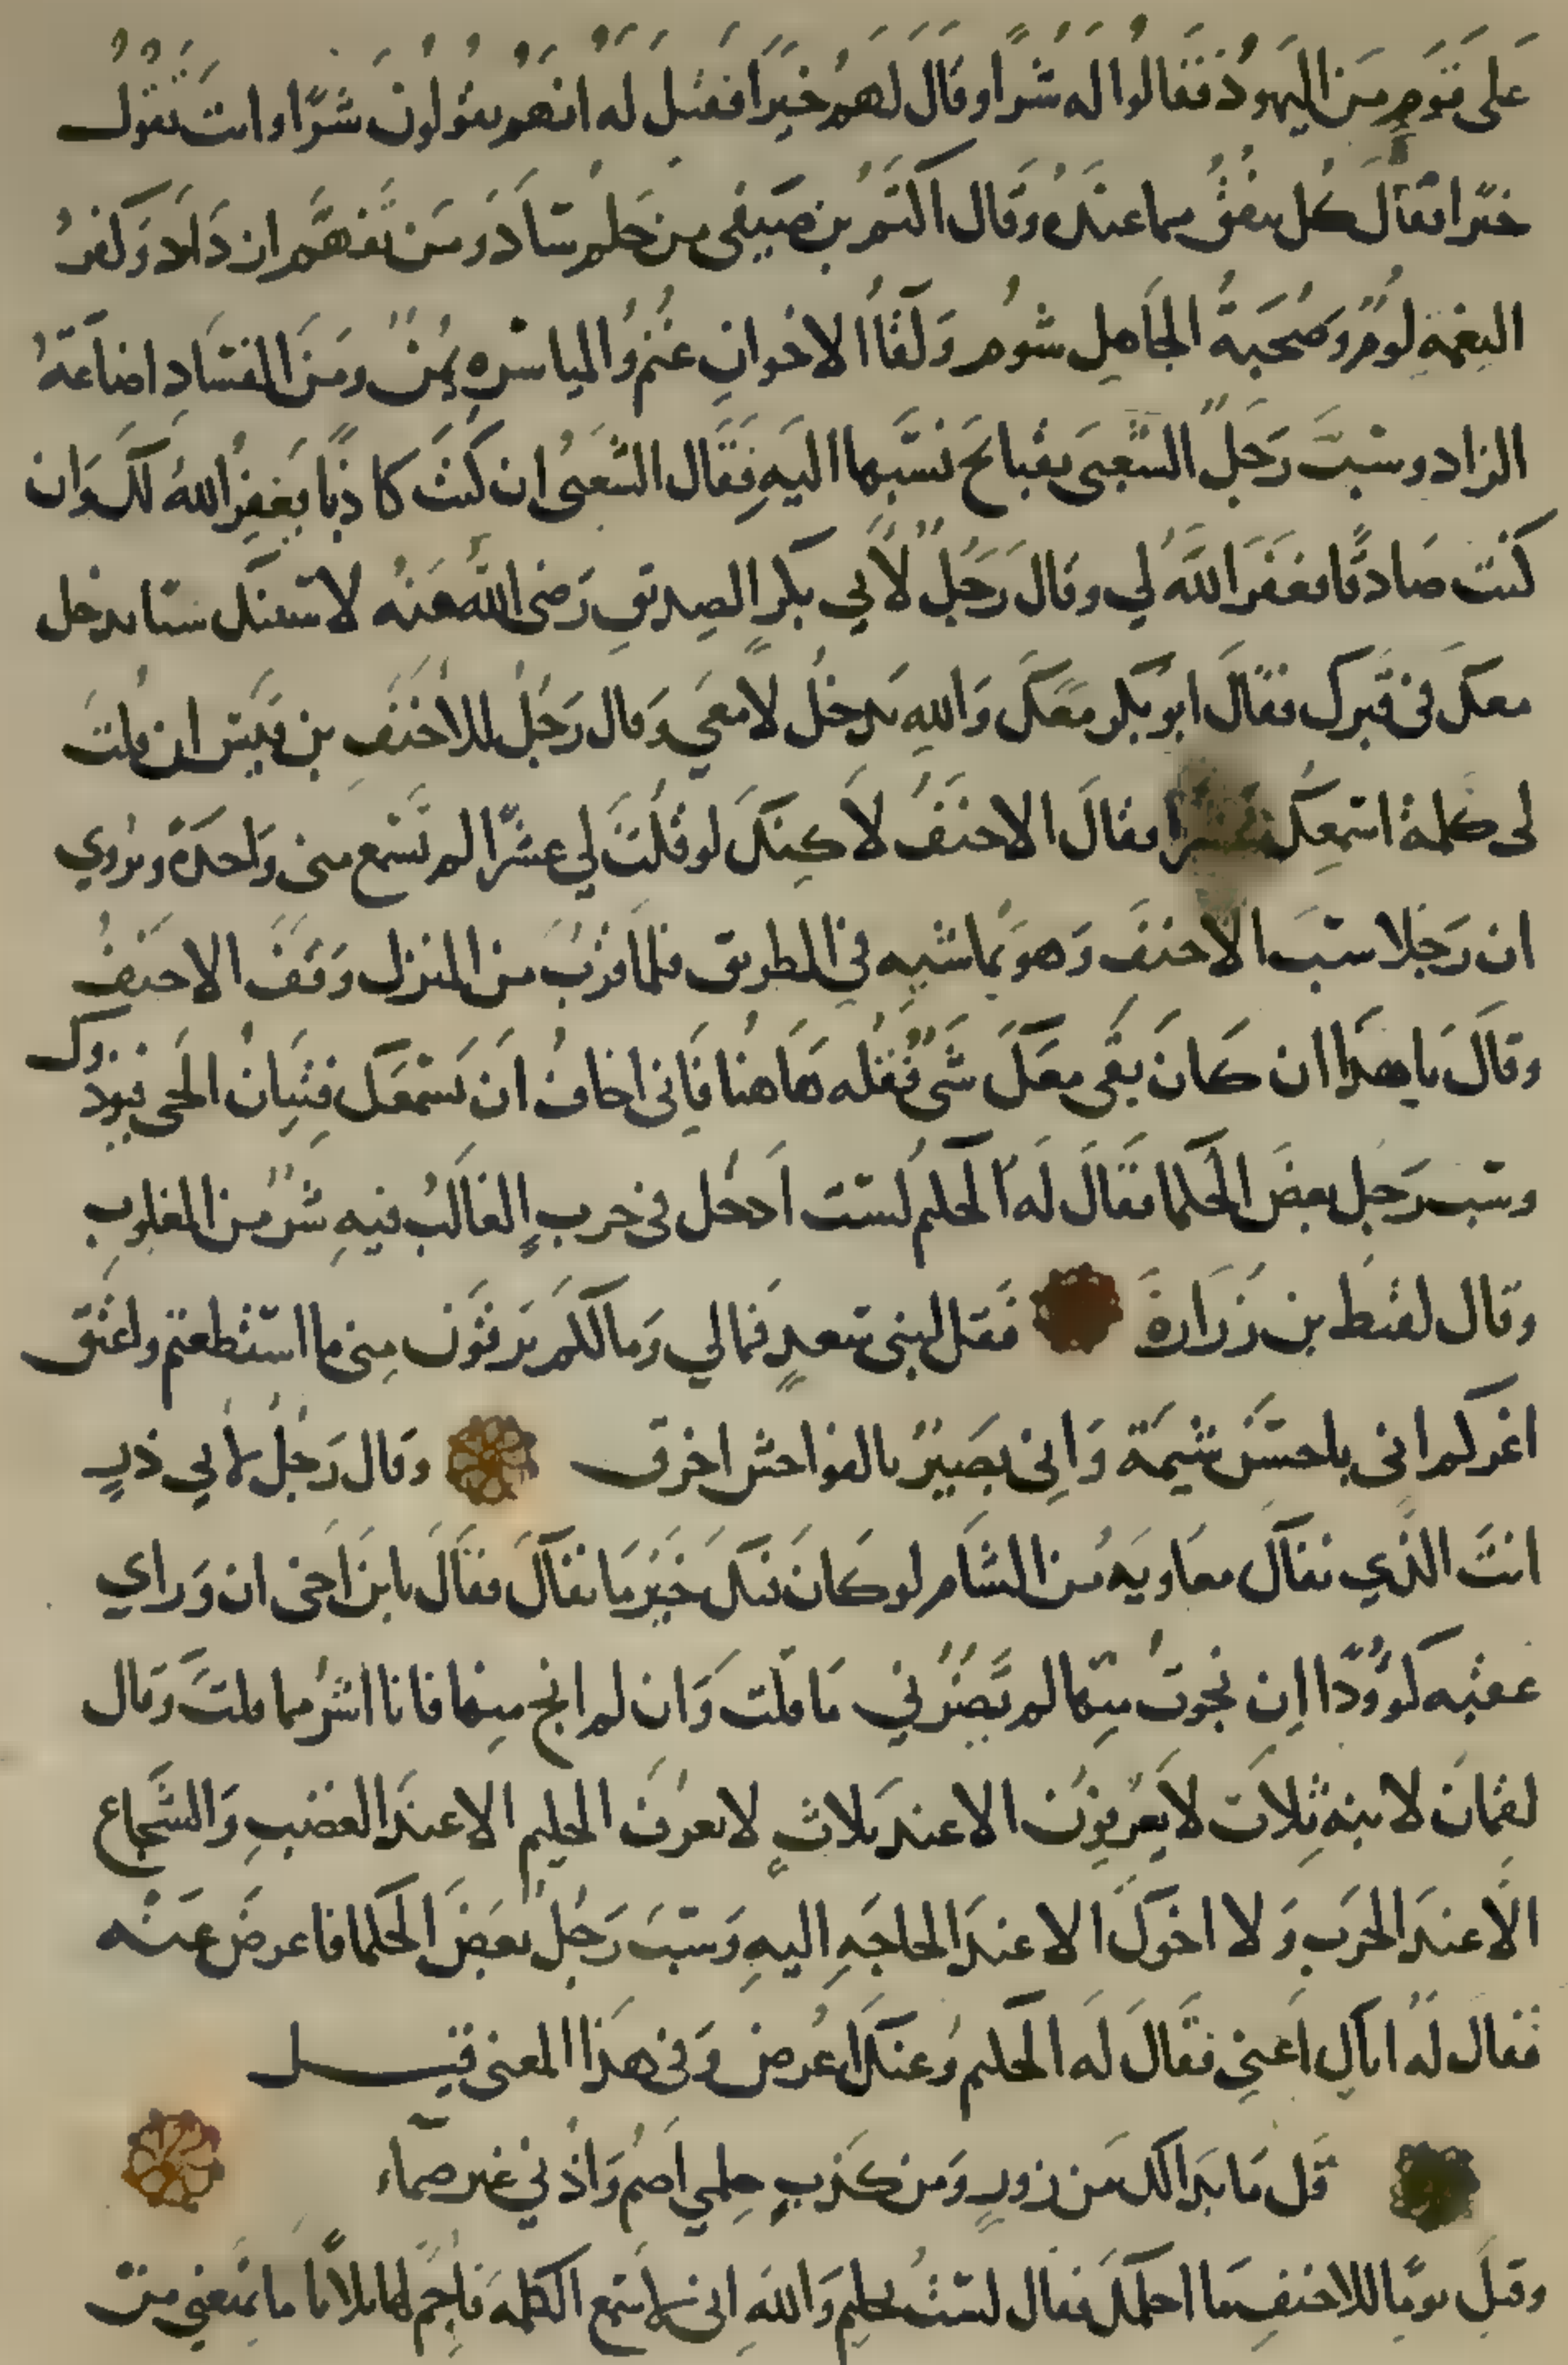 على قوم من اليهود فقالوا له شرا وقال لهم خيرا فقيل له انهم يقولون شرا وانت تقول
خيرا فقال كل ينفق مما عنده وقال اكثم بن صيفي من حلم ساد ومن تفهم ازداد وكفر
النعمة لوم وصحبة الجاهل شوم ولقاا الاخوان غنم والمياسره يمن ومن الفساد اضاعة
الزاد وسب رجل الشعبي بقبائح نسبها اليه فقال الشعبي ان كنت كاذبا يغفر الله لك وان
كنت صادقا فغفر الله لي وقال رجل لأبي بكر الصديق رضي الله عنه لاسبنك سبا يدخل
معك في قبرك فقال ابو بكر معك والله يدخل لا معي وقال رجل للاحنف بن قيس ان قلت
لي كلمة اسمعك عشرا فقال الاحنف لاكنك لو قلت لي عشرا لم تسمع مني واحدة ويروي
ان رجلا سب الاحنف وهو يماشيه في الطريق فلما قرب من المنزل وقف الاحنف
وقال يا هذا ان كان بقى معك شي فقله هاهنا فاني اخاف ان تسمعك فتيان الحي فيوذوك
وسب رجل بعض الحكما فقال له الحكيم لست ادخل في حرب الغالب فيه شر من المغلوب
وقال لقيط بن زرارة فقل لبني سعد فمالي ومالكم ترقون مني ما استطعتم واعتق
اغركم اني باحسن شيمة واني بصير بالفواحش اخرق وقال رجل لأبي ذر
انت الذي نفاك معاويه من الشام لو كان فيك خير ما نفاك فقال يابن اخي ان وراي
عقبه كوودا ان نجوت منها لم يضرني ما قلت وان لم انج منها فانا اشر مما قلت وقال
لقمان لابنه ثلاث لا يعرفون الا عند ثلاث لا يعرف الحليم الا عند الغضب والشجاع
الا عند الحرب ولا اخوك الا عند الحاجه اليه وسب رجل بعض الحكما فاعرض عنه
فقال له اياك اعني فقال له الحكيم وعنك اعرض وفي هذا المعنى قيل
قل ما بدا لك من زور ومن كذب حلمي اصم واذني غير صماء
وقيل يوما للاحنف ما احلمك فقال لست بحليم والله اني لاسمع الكلمه فاحم لها ثلاثا ما يمنعني من